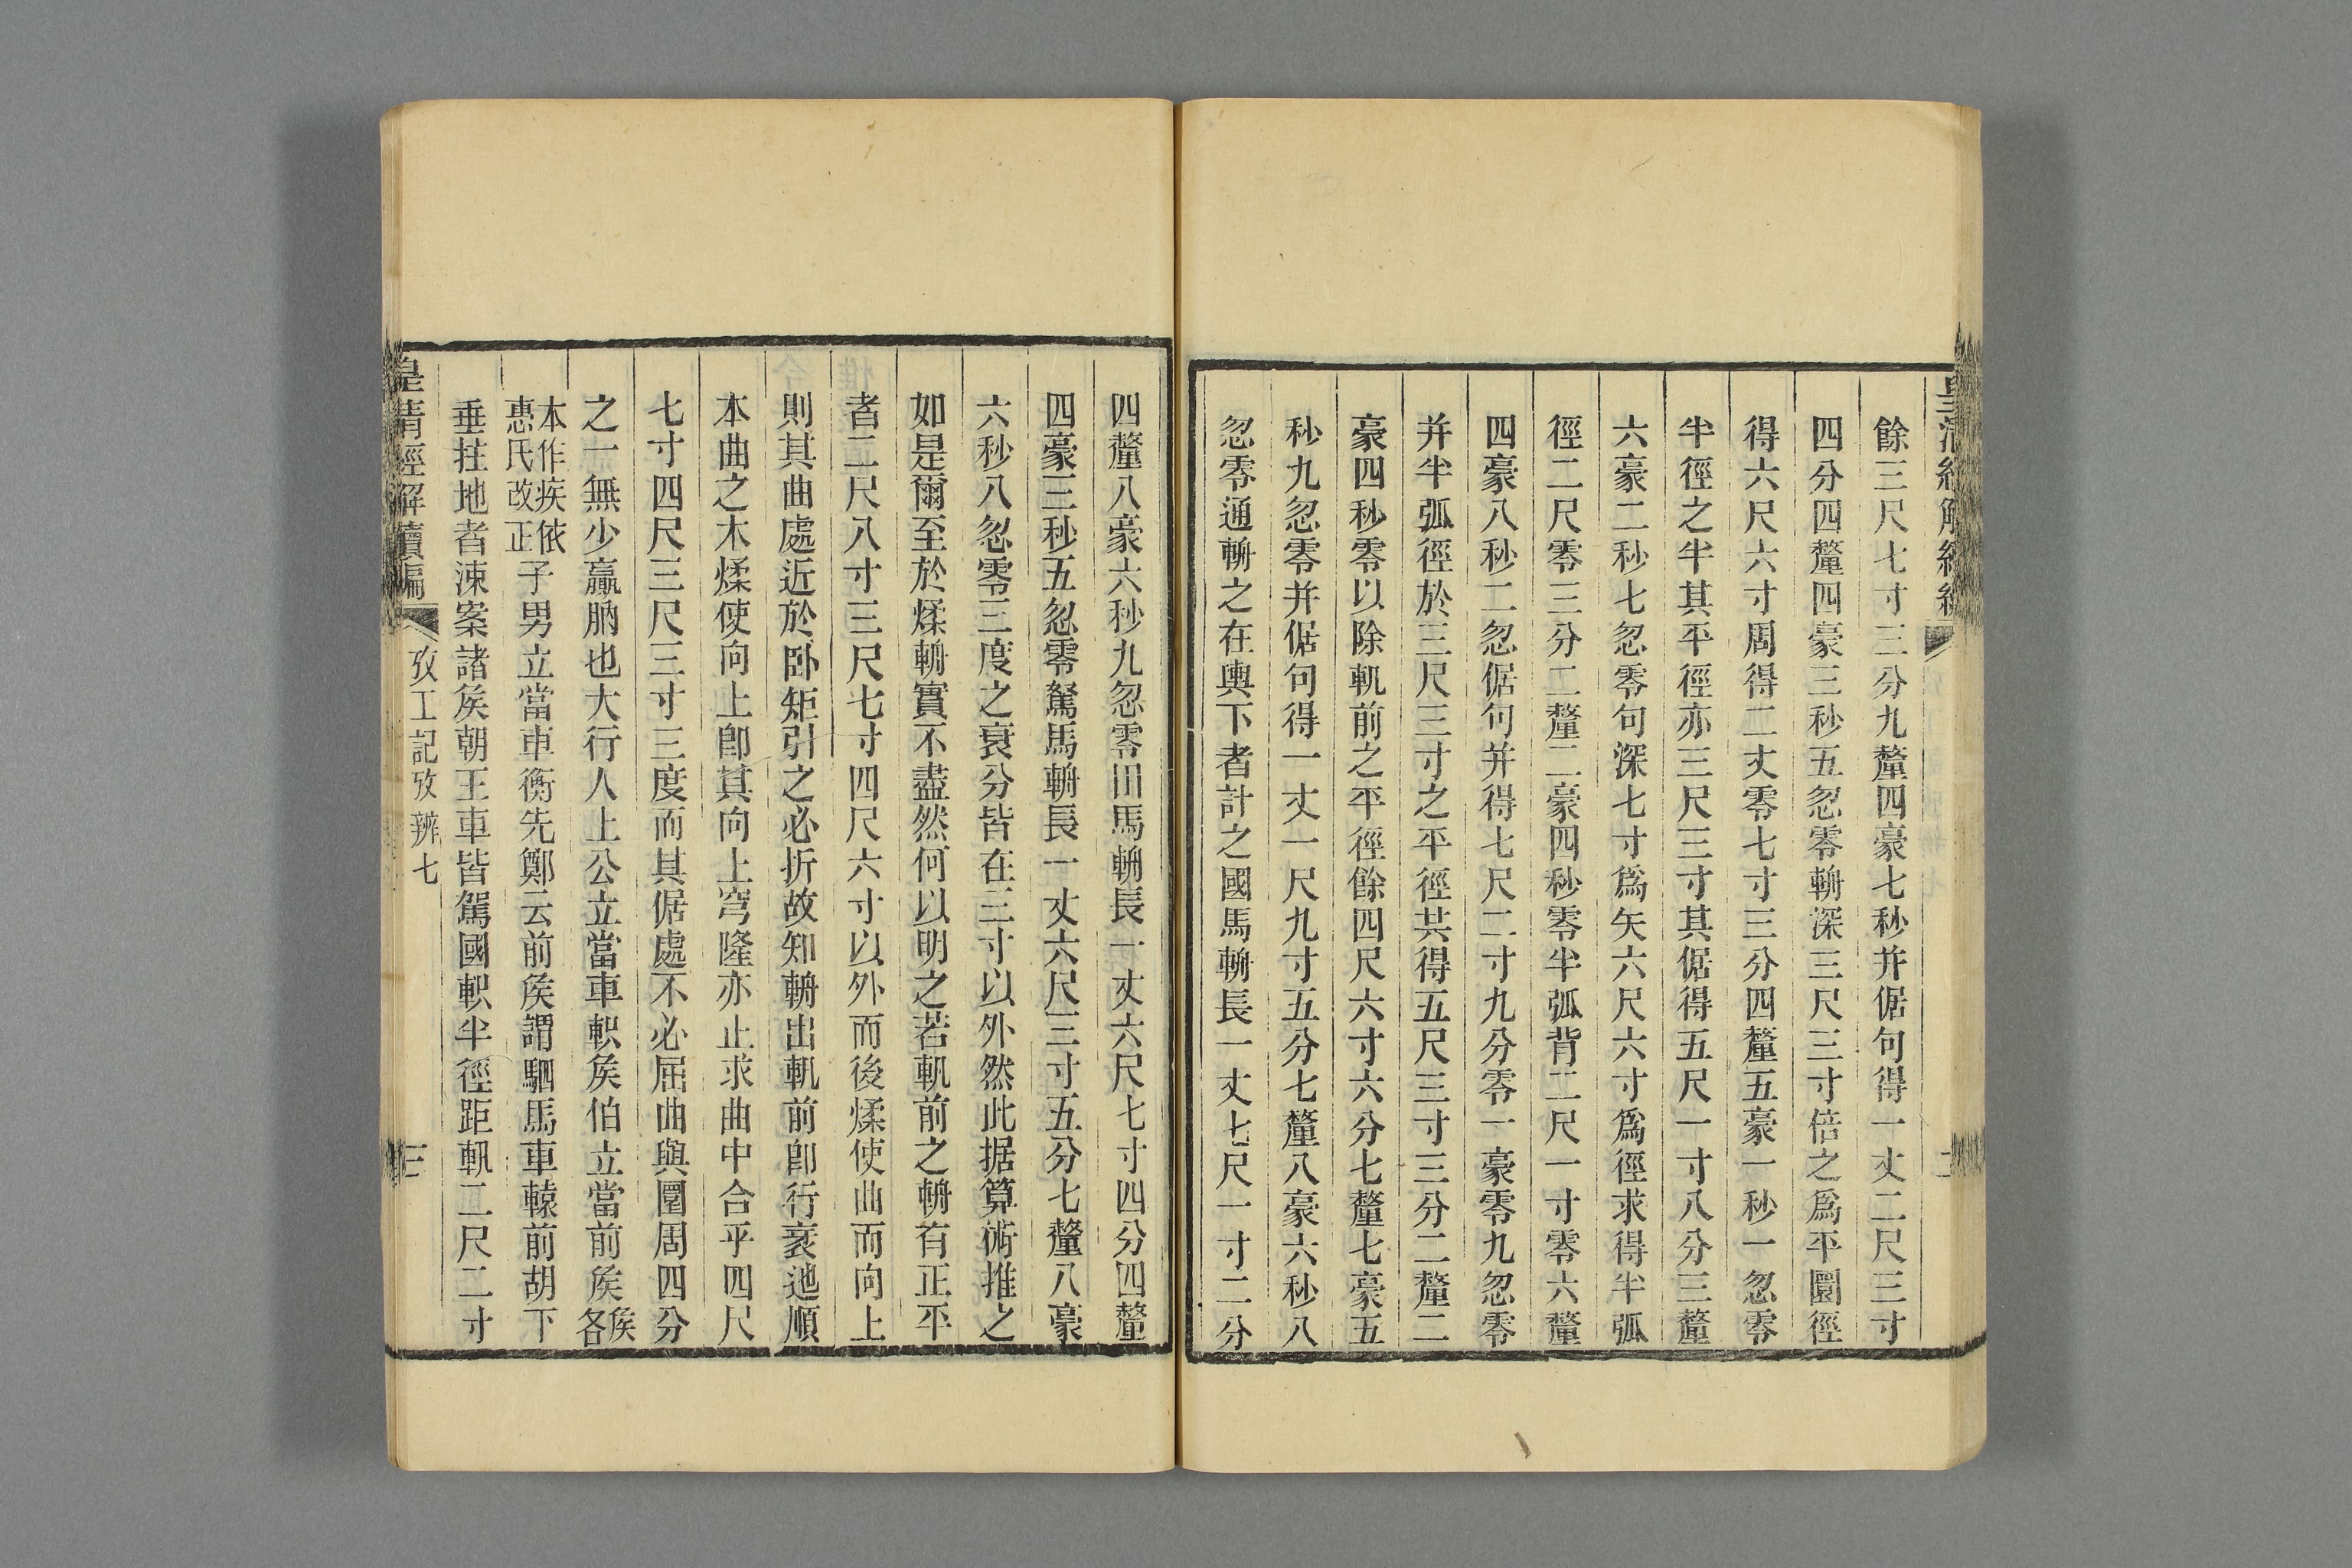 餘三尺七寸三分九釐四豪七秒并倨句得一丈二尺三寸
四分四釐四豪三秒五忽零輈深三尺三寸倍之爲平圜徑
得六尺六寸周得二丈零七寸三分四釐五豪一秒一忽零
半徑之半其平徑亦三尺三寸其倨得五尺一寸八分三釐
六豪二秒七忽零句深七寸爲矢六尺六寸爲徑求得半弧
徑二尺零三分二釐二豪四秒零半弧背二尺一寸零六釐
四豪八秒二忽倨句并得七尺二寸九分零一豪零九忽零
并半弧徑於三尺三寸之平徑共得五尺三寸三分二釐二
豪四秒零以除軓前之平徑餘四尺六寸六分七釐七豪五
秒九忽零并倨句得一丈一尺九寸五分七釐八豪六秒八
忽零通輈之在輿下者計之國馬輈長一丈七尺一寸二分
四釐八豪六秒九忽零田馬輈長一丈六尺七寸四分四釐
四豪三秒五忽零駑馬輈長一丈六尺三寸五分七釐八豪
六秒八忽零三度之衰分皆在三寸以外然此据算術推之
如是爾至於煣輈實不盡然何以明之若軓前之輈有正平
者二尺八寸三尺七寸四尺六寸以外而後煣使曲而向上
則其曲處近於卧矩引之必折故知輈出軓前卽行衺迆順
本曲之木煣使向上卽其向上穹隆亦止求曲中合乎四尺
七寸四尺三尺三寸三度而其倨處不必屈曲與圜周四分
之一無少贏朒也大行人上公立當車軹矦伯立當前矦矦各
本作疾依惠氏改正子男立當車衡先鄭云前矦謂駟馬車轅前胡下
垂拄地者涷案諸矦朝王車皆駕國軹半徑距軓二尺二寸
皇清經解續編
攷工記攷辨七
三